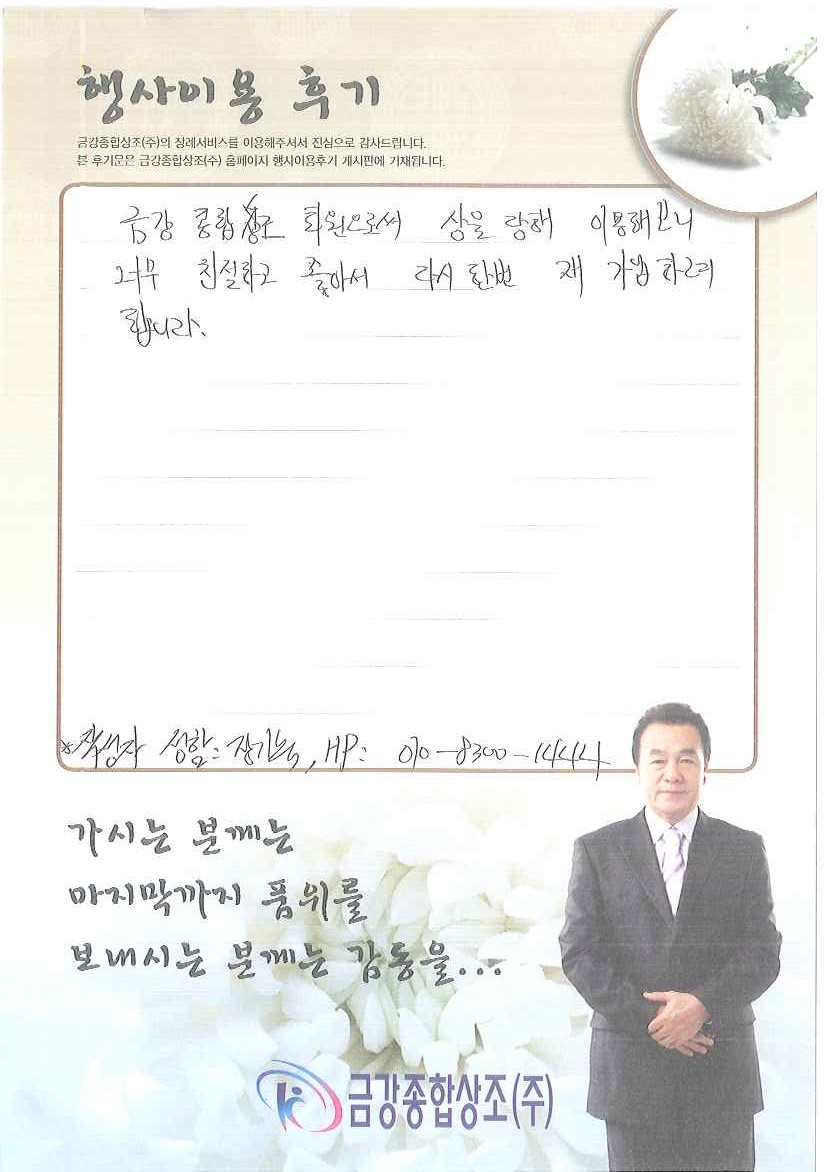 행사이용 후기
금강종합상조(주)의 장례서비스를 이용해주셔서 진심으로 감사드립니다.
본 후기문은 금강종합상조(주) 홈페이지 행사이용후기 게시판에 기재됩니다.
금강 종합 상조 회원으로써 상을 당해 이용해보니
너무 친절하고 좋아서 다시 한번 재 가입 하려
합니다.
*작성자 성함: HP: 010-8300-1444
가시는 분께는
마지막까지 품위를
보내시는 분께는 감동을...
금강종합상조(주)